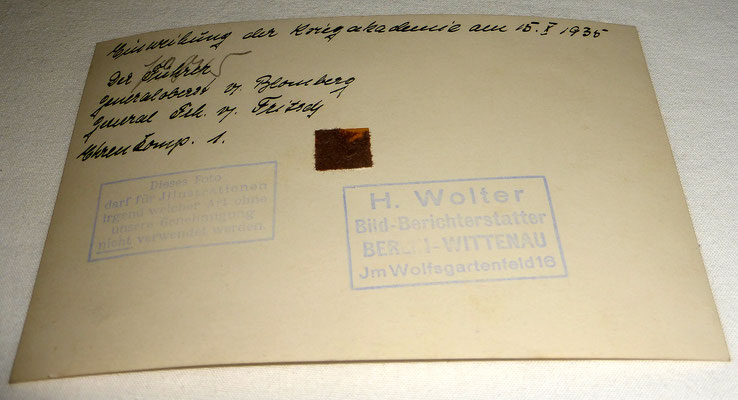 Einweihung der Kriegsakademie am 15. X 1935
Der Führer
Generaloberst v. Blomberg
General Frh. v. Fritsch
Ehren Komp. 1.
Dieses Foto
darf für Jllustrationen
irgend welcher Art ohne
unsere Genehmigung
nicht verwendet werden.
H. Wolter
Bild-Berichterstatter
BERLIN-WITTENAU
Jm Wolfsgartenfeld 16